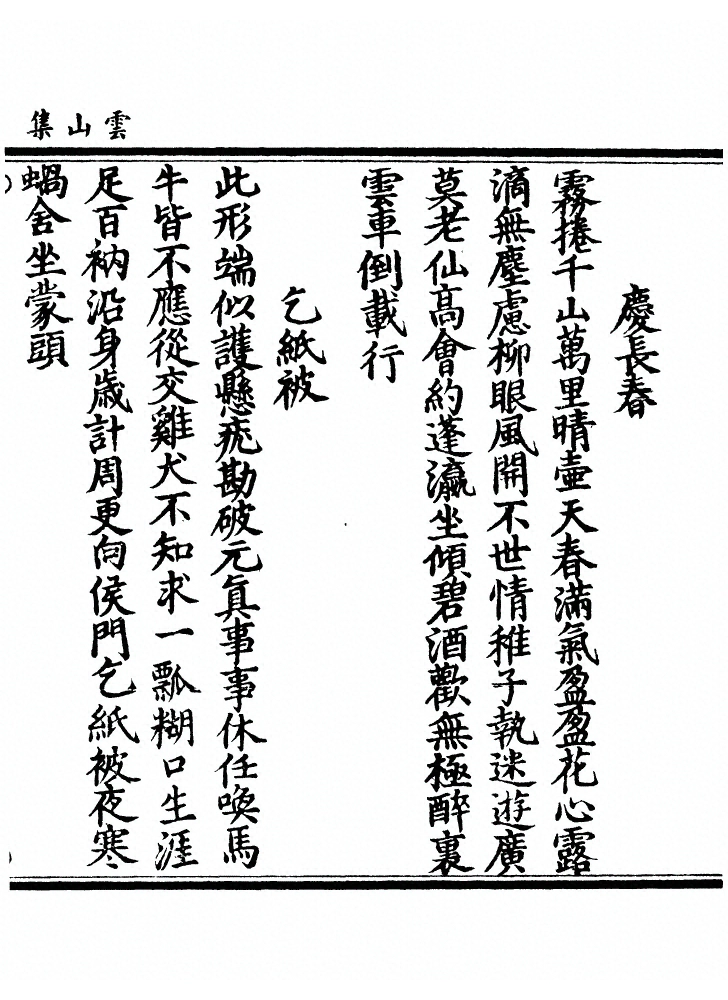 雲山集
慶長春
霧捲千山萬里晴壷天春滿氣盈盈花心露
滴無塵慮柳眼風開不世情稚子執迷遊廣
莫老仙高會約蓬瀛坐傾碧酒歡無極醉裏
雲車倒載行
乞紙被
此形端似護懸疣勘破元眞事事休任喚馬
牛皆不應從交雞犬不知求一瓢糊口生涯
足百衲沿身歳計周更向侯門乞紙被夜寒
蝸舍坐蒙頭